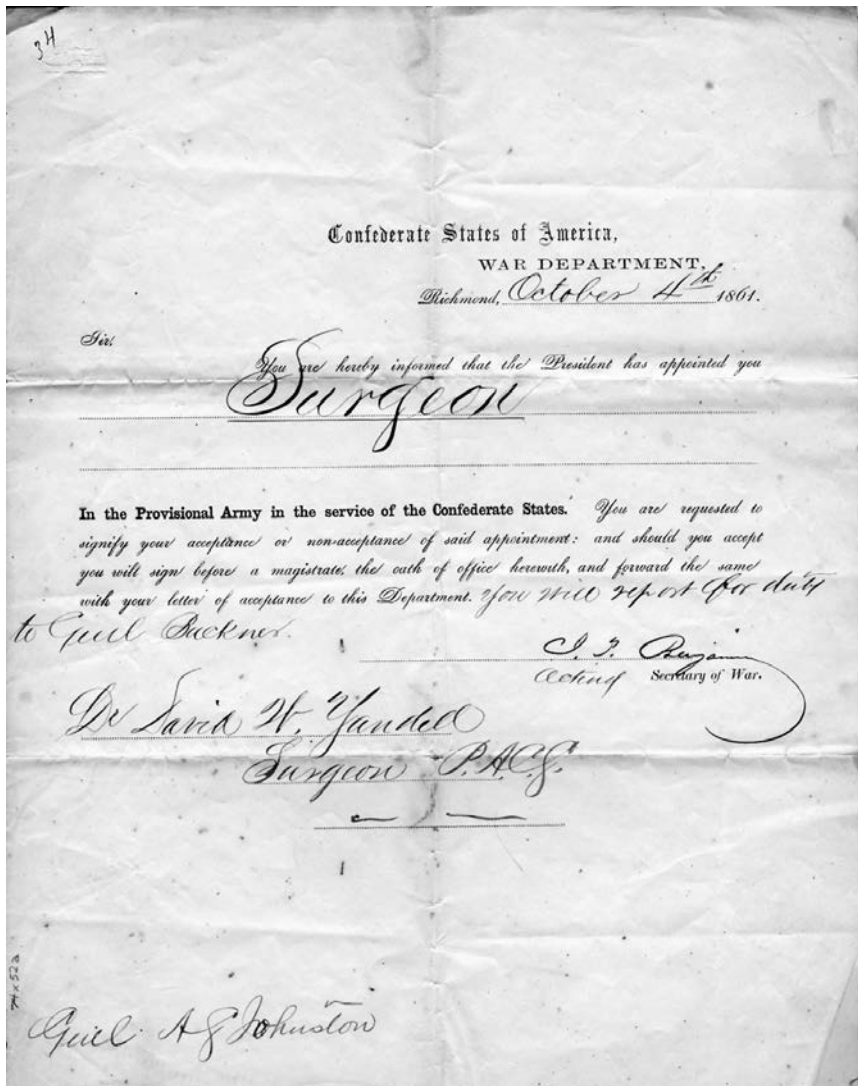 34
Confederate States of America,
WAR DEPARTMENT,
Richmond, October 4th 1861.
Sir:
You are hereby informed that the President has appointed you
Surgeon
In the Provisional Army in the service of the Confederate States. You are requested to
signify your acceptance or non-acceptance of said appointment: and should you accept
you will sign before a magistrate, the oath of office herewith, and forward the same
with your letter of acceptance to this Department. You will report for duty
to Genl Buckner.
J. P. Benjamin
Acting Secretary of War.
Dr David W. Yandell
Surgeon P.A.C.S.
Genl A S Johnston